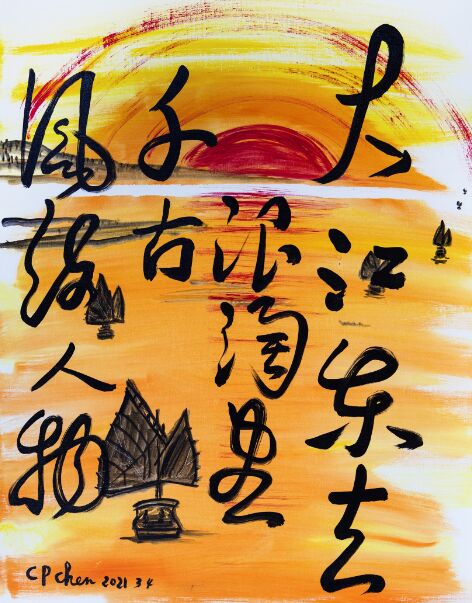 大江東去
浪淘盡
千古
風流人物
CP chen 2021 3 4